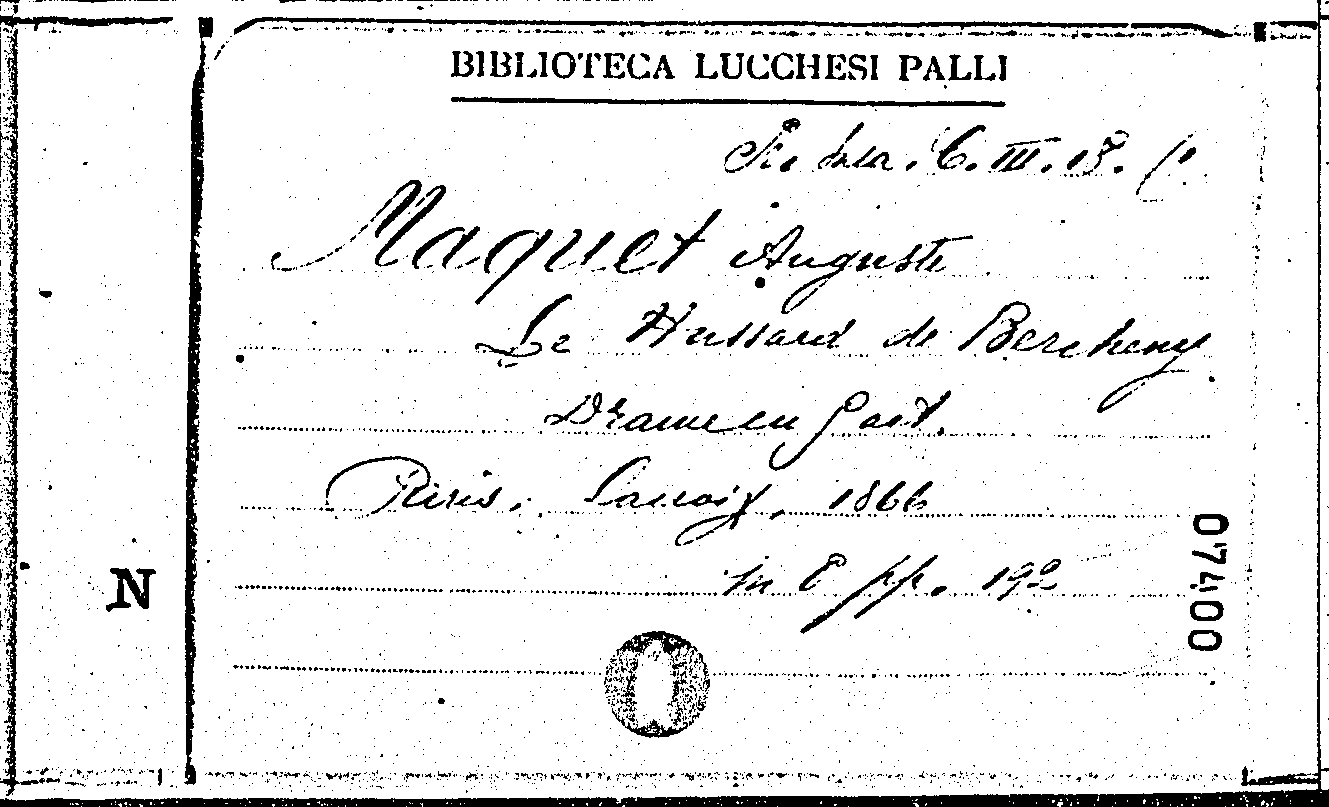 BIBLIOTECA LUCCHESI PALLI
Sala. C. III. 18.
Maquet Auguste
Le Hussard de Bercheny
Drame en 5 act.
Paris, Lacroix, 1866
in 8 pp. 192
N
07400